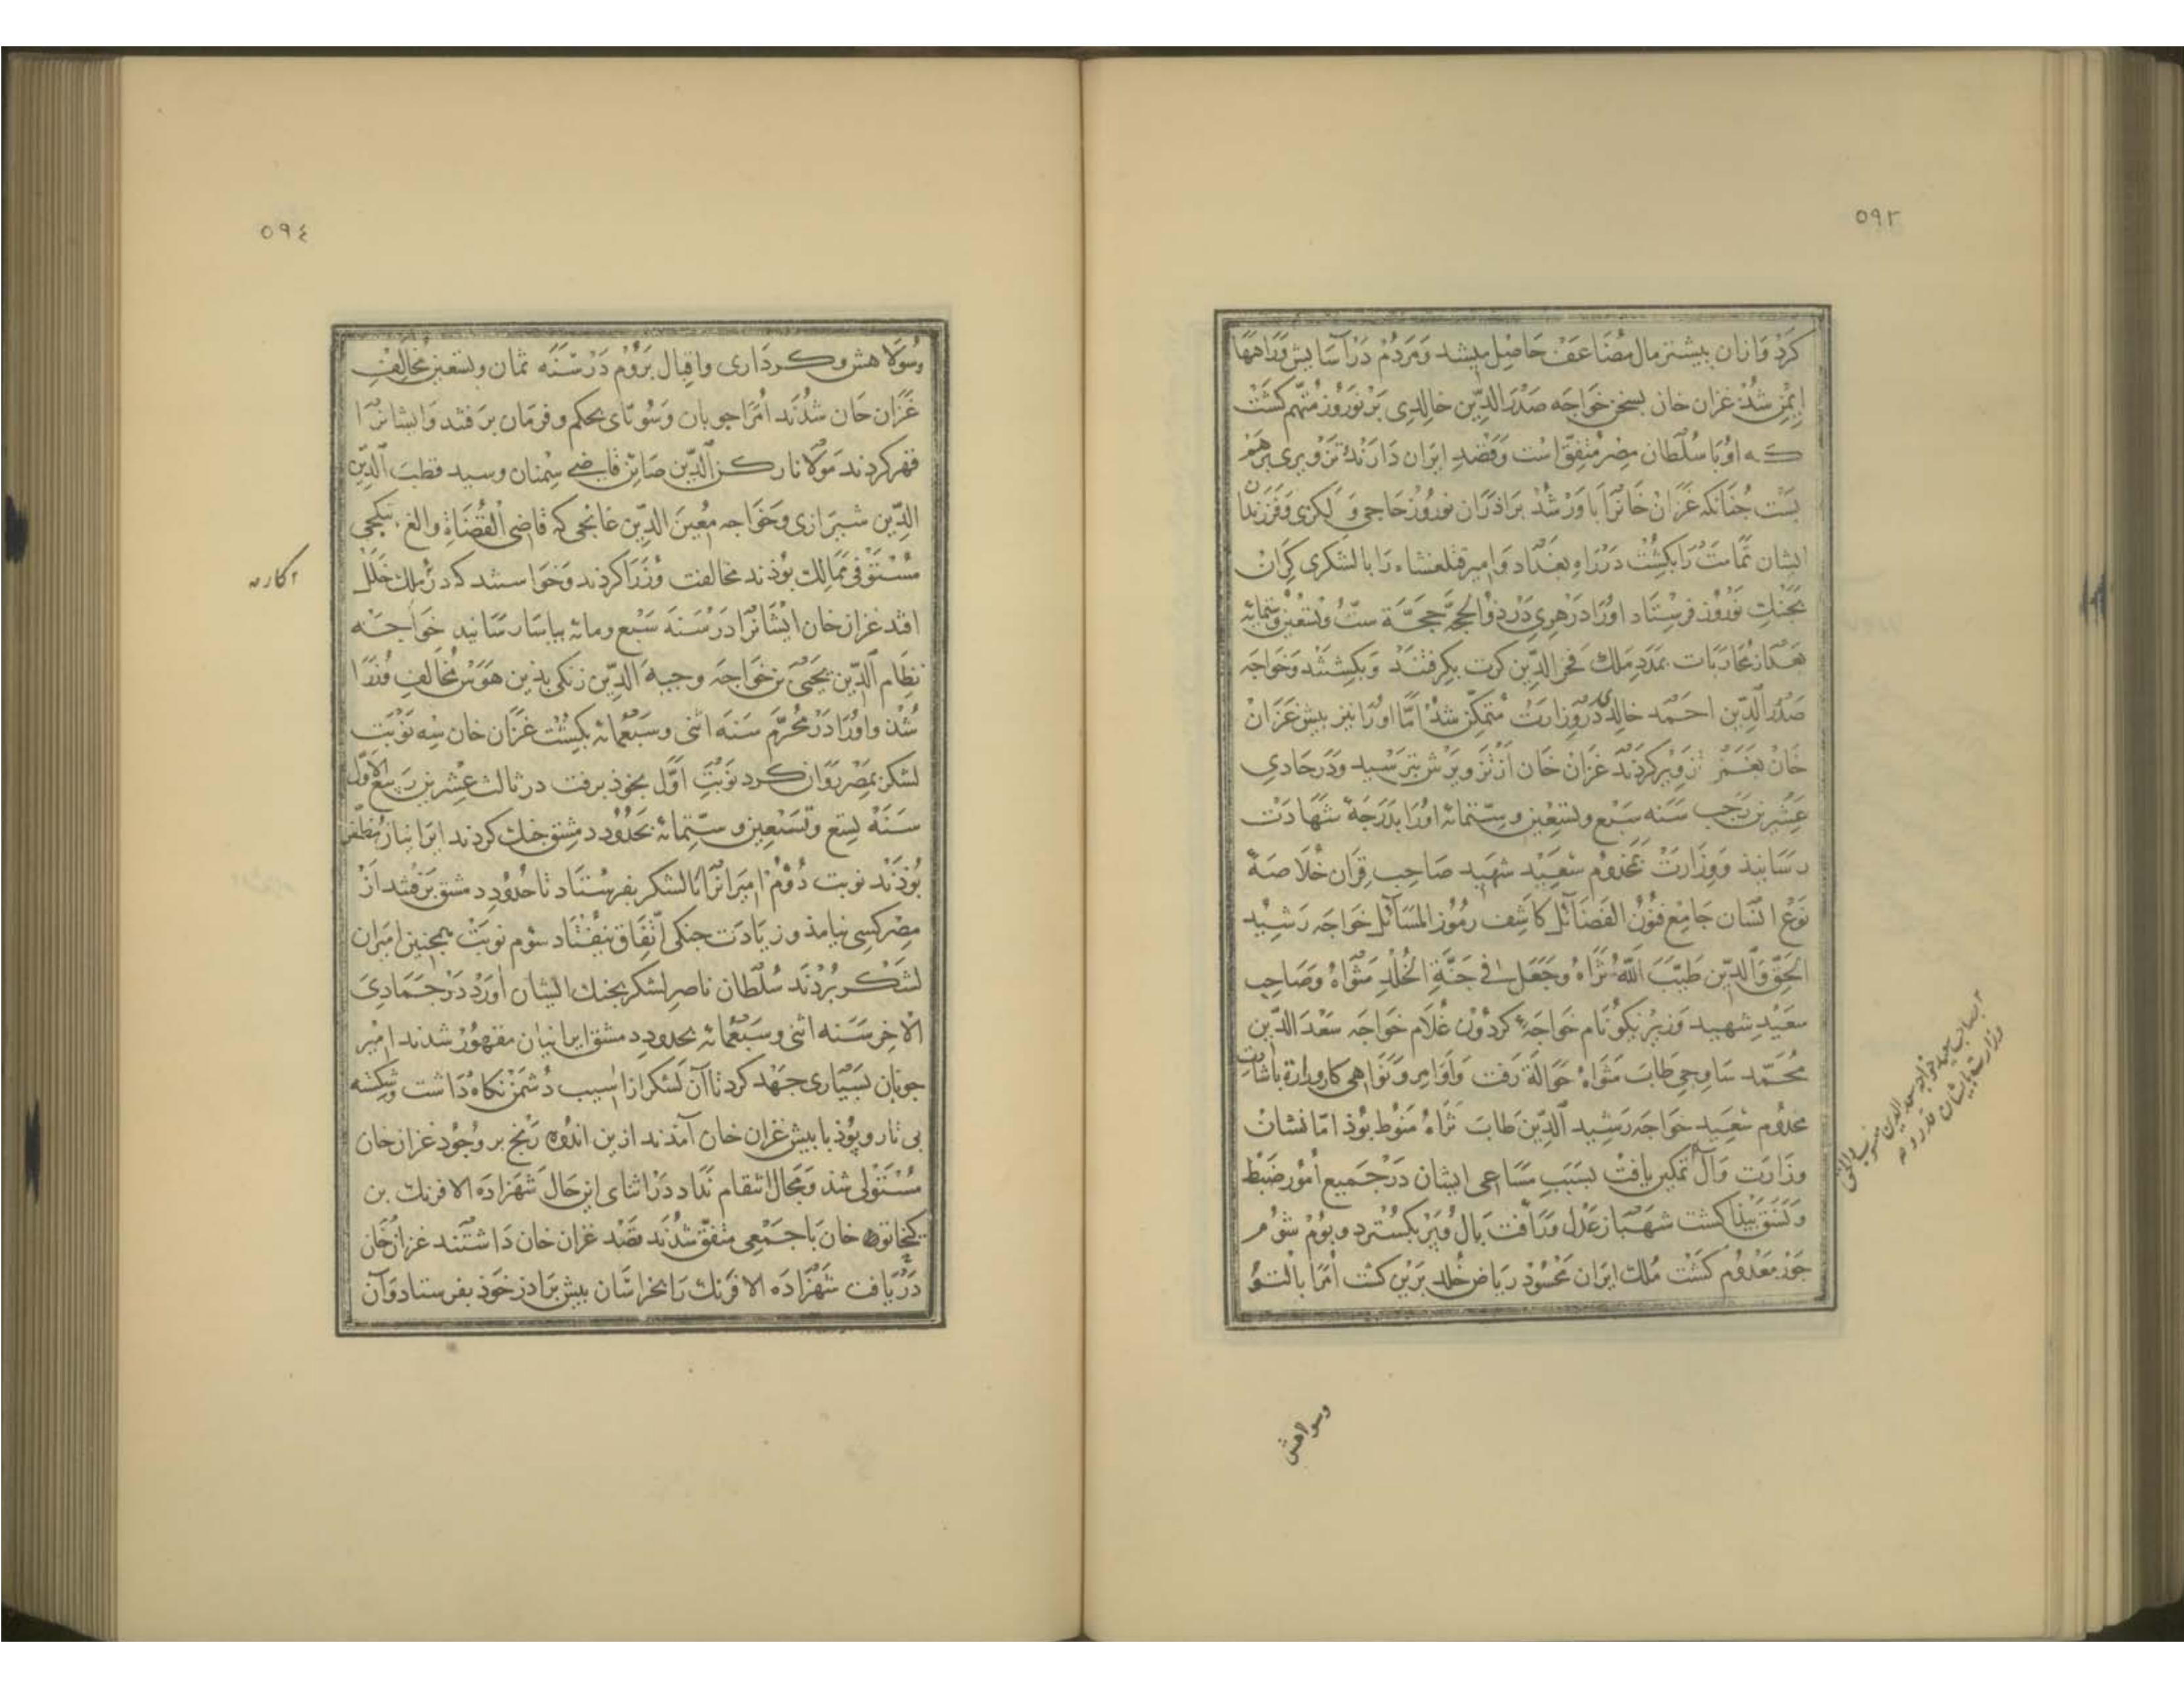 ٥٩٣
كرد و ازان بیشتر مال مضاعف حاصل میشد و مردم در آسایش و راهها
ایمن شد غزان خان بسخن خواجه صدر الدین خالدی بر نوروز متهم کشت
که او با سلطان مصر متفق است و قصد ایران دارند تزویری برهم
بست جنانکه غزان خانرا باور شد برادران نوروز حاجی و لکزی و فرزندان
ایشان تمامت را بکشت در راه بغداد و امیر قتلغشاه را با لشکری کران
بجنک نوروز فرستاد او را در هری در ذو الحجه حجة ست و تسعین و ستمائه
بعد از محاربات بمدد ملک فخر الدین کرت بکرفتند و بکشتند و خواجه
صدر الدین احمد خالدی در وزارت متمکن شد اما او را نیز بیش غزان
خان بغمز تزویر کردند غزان خان از تزویرش بترسید و در حادی
عشرین رجب سنه سبع و تسعین و ستمائه او را بدرجة شهادت
رسانید و وزارت بمخدوم سعید شهید صاحب قران خلاصة
نوع انسان جامع فنون الفضائل کاشف رموز المسائل خواجه رشید
الحق و الدین طیب الله ثراه و جعل فی جنة الخلد مثواه و صاحب
سعید شهید وزیر نیکو نام خواجهٔ کردون غلام خواجه سعد الدین
محمد ساوجی طاب مثواه حواله رفت و اوامر و نواهی کار وزارة باشارت
مخدوم سعید خواجه رشید الدین طاب ثراه منوط بوذ اما نشان
وزارت و آل تمکین یافت بسبب مساعی ایشان در جمیع امور ضبط
و نسق بیذا کشت شهباز عدل و رأفت بال و پر بکسترد و بوم شوم
جور معدوم کشت ملک ایران محسود ریاض خلد برین کشت امرا بالتو
وسواهش
٥٩٤
وسولاهش و کرداری واقبال بروم در سنه ثمان و تسعین مخالف
غزان خان شدند امرا جوبان و سوتای بحکم و فرمان برفتند و ایشانرا
قهر کردند مولانا رکن الدین صائن قاضی سمنان و سید قطب الدین
الدین شیرازی و خواجه معین الدین غانجی که قاضی القضاة و الغ بیکجی
مستوفی ممالک بوذند مخالفت وزرا کردند و خواستند که در ملک خلل
افتد غزان خان ایشانرا در سنه سبع ومائه بیاسا رسانید خواجه
نظام الدین یحیی بن خواجه وجیه الدین زنکی بذین هوس مخالف وزرا
شذ و او را در محرم سنه اثنی و سبعمائه بکشت غزان خان سه نوبت
لشکر بمصر روان کرد نوبت اول بخوذ برفت در ثالث عشرین ربیع الاول
سنه تسع و تسعین و ستمائه بحدود دمشق جنک کردند ایرانیان مظفر
بوذند نوبت دوم امیرانرا با لشکر بفرستاد تا حدود دمشق برفتند از
مصر کسی نیامذ و زیادت جنکی اتفاق نیفتاد سوم نوبت همجنین امیران
لشکر بردند سلطان ناصر لشکر بجنک ایشان آورد در جمادی
الاخر سنه اثنی و سبعمائه بحدود دمشق ایرانیان مقهور شدند امیر
جوبان بسیاری جهد کرد تا آن لشکر از اسیب دشمن نکاه داشت و شکسته
بی تار و پوذ با بیش غزان خان آمدند ازین اندوه رنج بر وجود غزان خان
مستولی شذ و مجال انتقام نداد در اثنای این حال شهزاده الافرنک بن
کیخاتو خان با جمعی متفق شدند قصد غزان خان داشتند غزان خان
دریافت شهزاده الافرنک را بخراسان بیش برادر خوذ بفرستاد و آن